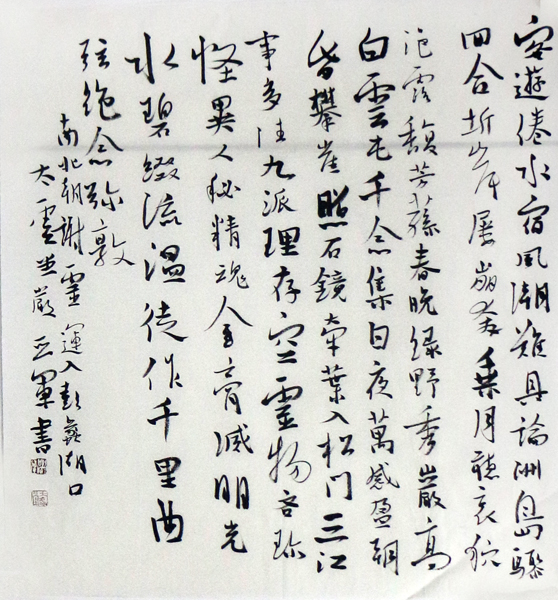 客遊倦水宿風潮難具論洲島驟
回合圻岸屢崩奔乘月聽哀狖
浥露馥芳蓀春晚綠野秀巖高
白雲屯千念集日夜萬感盈朝
昏攀崖照石鏡牽葉入松门三江
事多往九派理存空靈物吝珎
怪異人秘精魂金膏滅明光
水碧綴流溫徒作千里曲
弦絕念弥敦
南北朝謝靈運入彭蠡湖口
太虛 軍書